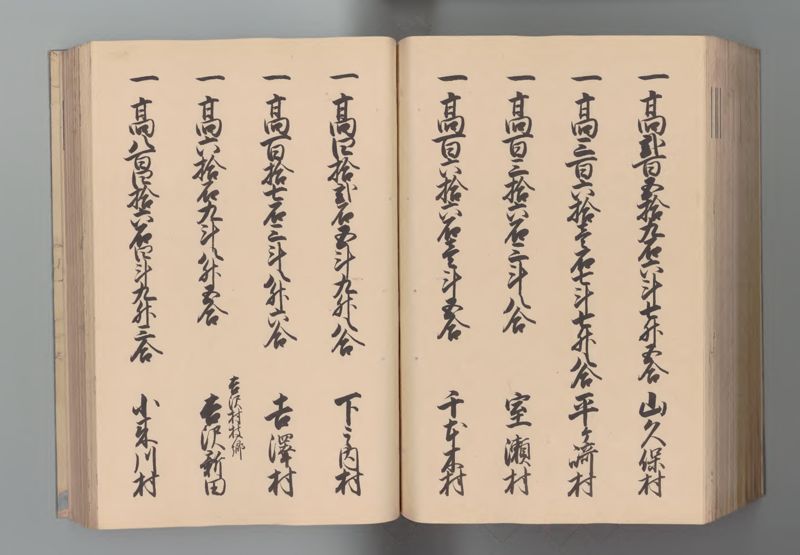 一 高弐百五拾九石六斗七升五合 山久保村
一 高三百六拾壱石七斗七升八合 平ヶ崎村
一 高百三拾六石三斗八合 室瀬村
一 高百六拾六石壱斗五合 千本木村
一 高四拾弐石五斗九升八合 下之内村
一 高百拾七石三斗八升六合 吉澤村
一 高六拾石九斗八升五合 吉沢村枝郷 吉沢新田
一 高八百四拾六石四斗九升三合 小来川村